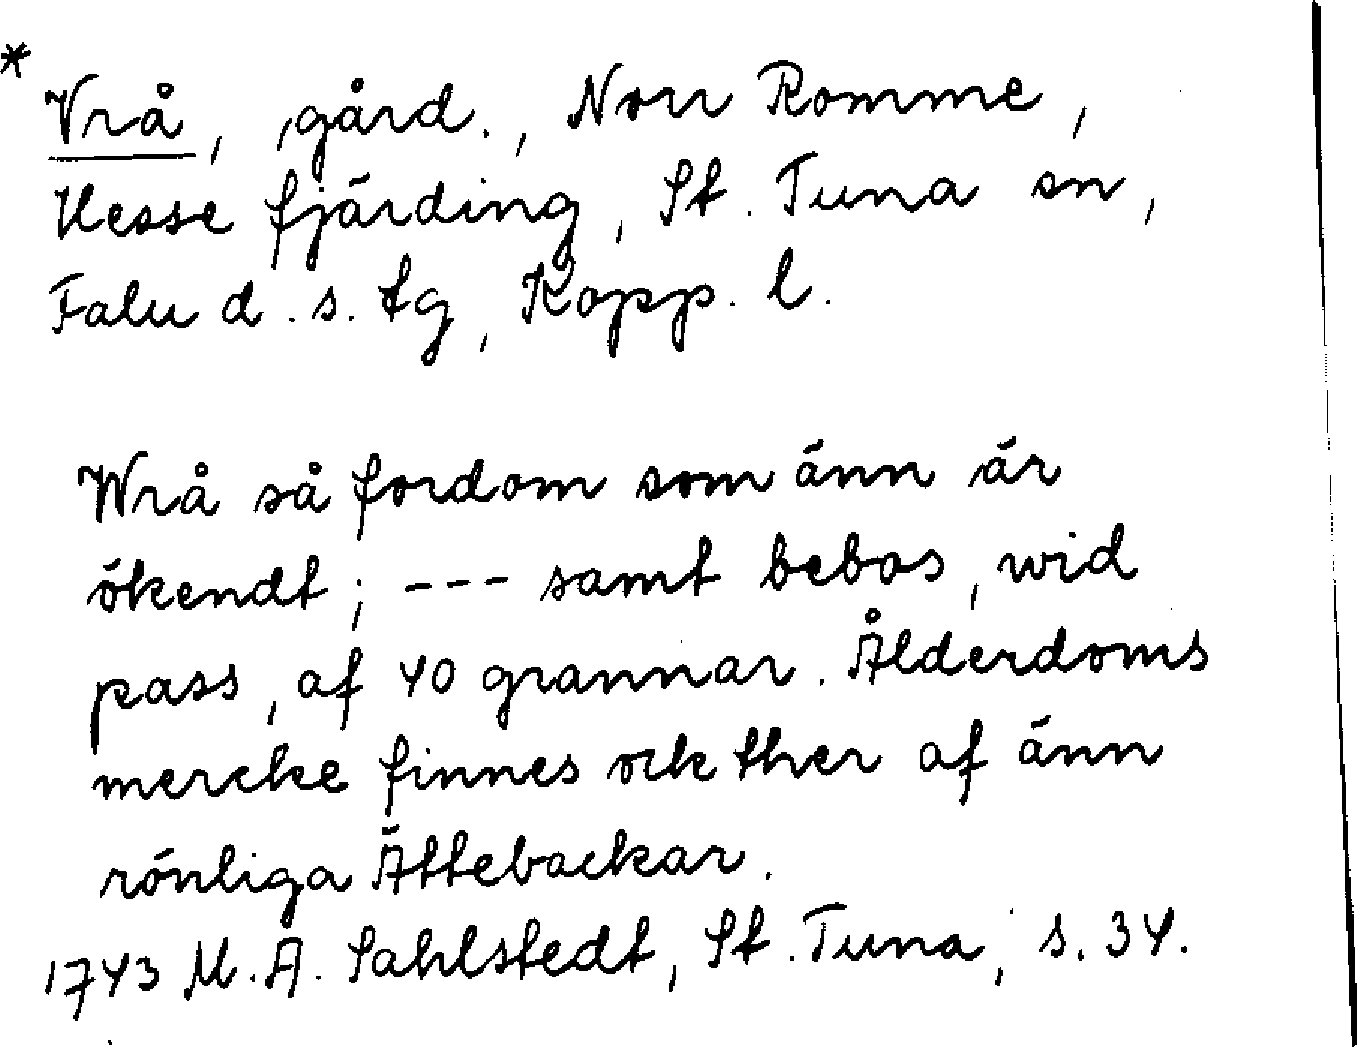 *
Vrå, gård., Norr Romme,
Hesse fjärding, St. Tuna sn,
Falu d. s. tg, Kopp. l.
Wrå så fordom som änn är
ökendt; --- samt bebos, wid
pass, af 40 grannar. Ålderdoms
mercke finnes ock ther af änn
rönliga Ättebackar.
1743 M. A. Sahlstedt, St. Tuna, s. 34.